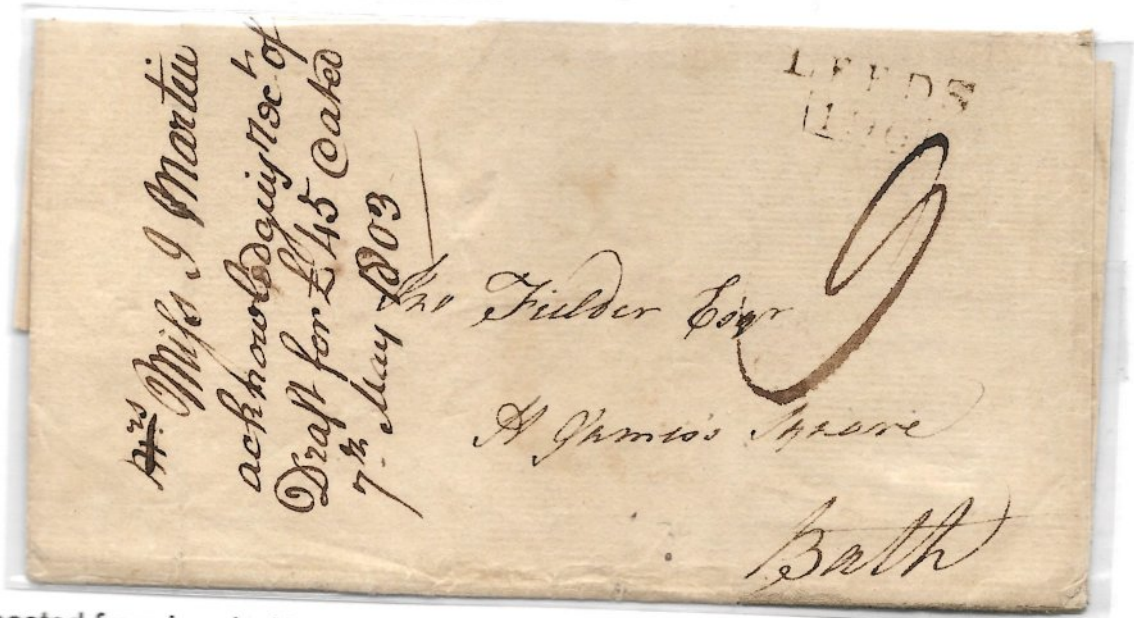 M.rs Miss J Martin
acknowledging Rec.t of
Draft for £45 Dated
7.th May 1803
LEEDS
Jno Fielder Esqr
St James's Square
Bath
9